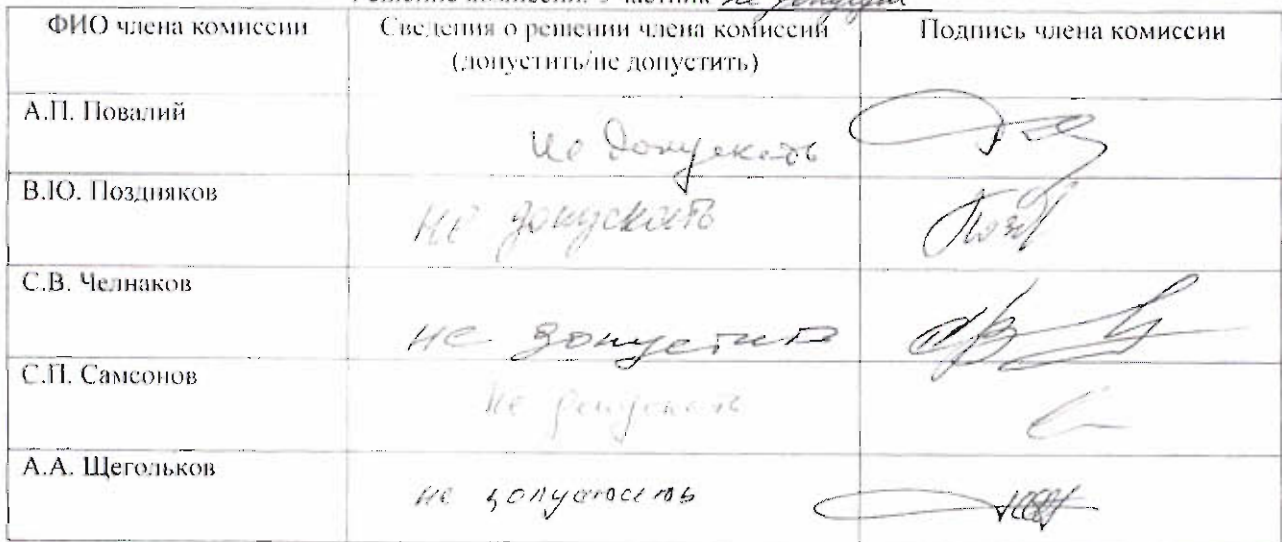 Решение комиссии: Участник не допущен
ФИО члена комиссии
Сведения о решении члена комиссии
(допустить/не допустить)
Подпись члена комиссии
А.П. Повалий
не допускать
В.Ю. Поздняков
не допускать
С.В. Челнаков
не допустить
С.П. Самсонов
не допускать
А.А. Щегольков
не допустить